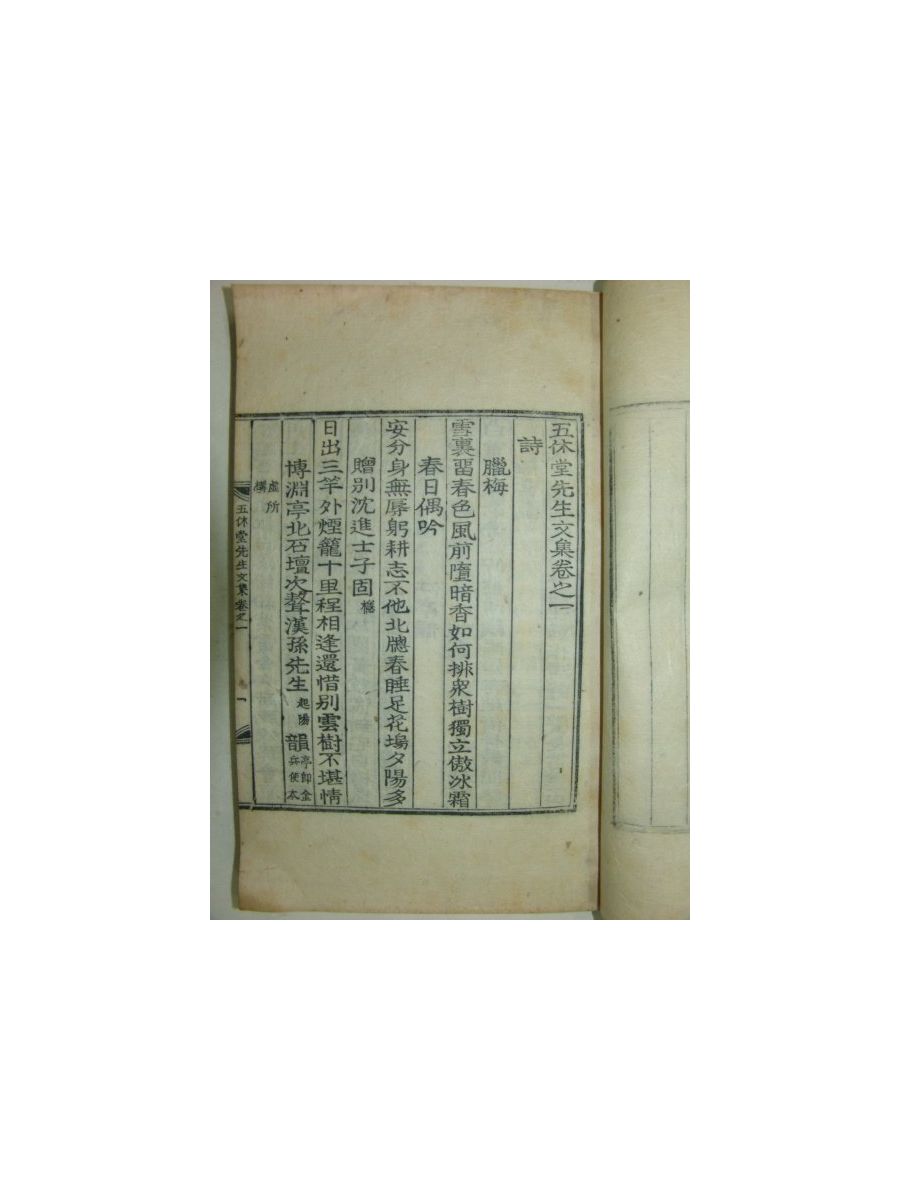 五休堂先生文集卷之一
詩
臘梅
雪裏留春色風前墮暗香如何排衆樹獨立傲冰霜
春日偶吟
安分身無辱躬耕志不他北牕春睡足花塢夕陽多
贈別沈進士子固
日出三竿外煙籠十里程相逢還惜別雲樹不堪情
博淵亭北石壇次聱漢孫先生起陽韻亭即金兵使太
虛所構
五休堂先生文集卷之一 一